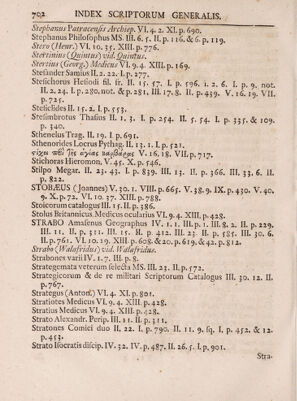 702 INDEX SCRIPTORUM GENERALIS.
Stephanus Patracensis Archiep. VI. 4. 2. XI. p. 690.
Stephanus Philosophus MS. III. 6. 5. II. p. 116. & 6. p. 119.
Stero (Henr.) VI. 10. 35. XIII. p. 776.
Stertinius (Quintus) vid. Quintus.
Stertius (Georg.) Medicus VI. 9. 4. XIII. p. 169.
Stesander Samius II. 2. 22. I. p. 277.
Stesichorus Hesiodi fil. fr. II. 15. 57. I. p. 596. 1. 2. 6. I. p. 9. not.
II. 2. 24. I. p. 280. not. & p. 281. III. 17. 8. II. p. 439. V. 16. 19. VII.
p. 725.
Stesiclides II. 15. 2. I. p. 553.
Stesimbrotus Thasius II. 1. 3. I. p. 254. II. 5. 54. I. p. 335. & 109.
p. 340.
Sthenelus Trag. II. 19. I. p. 691.
Sthenorides Locrus Pythag. II. 13. 1. I. p. 521.
V. 16. 18. VII. p. 717.
Stichoras Hieromon. V. 45. X. p. 546.
Stilpo Megar. II. 23. 43. I. p. 839. III. 13. II. p. 366. III. 33. 6. II.
p. 822.
STOBÆUS (Joannes) V. 30. 1. VIII. p. 665. V. 38. 9. IX. p. 430. V. 40.
9. X. p. 72. VI. 10. 37. XIII. p. 788.
Stoicorum catalogus III. 15. II. p. 386.
Stolus Britannicus, Medicus ocularius VI. 9. 4. XIII. p. 428.
STRABO Amasenus Geographus IV. 1. 1. III. p. 1. III. 8. 2. II. p. 229.
III. 11. II. p. 311. III. 15. II. p. 412. III. 23. II. p. 585. III. 30. 6.
II. p. 761. VI. 10. 19. XIII. p. 608. & 20. p. 619. & 42. p. 812.
Strabo (Walafridus) vid. Walafridus.
Strabones varii IV. 1. 7. III. p. 8.
Strategemata veterum selecta MS. III. 23. II. p. 572.
Strategicorum & de re militari Scriptorum Catalogus III. 30. 12. II.
p. 767.
Strategus (Anton.) VI. 4. XI. p. 801.
Stratiotes Medicus VI. 9. 4. XIII. p. 428.
Stratius Medicus VI. 9. 4. XIII. p. 428.
Strato Alexandr. Perip. III. 11. II. p. 311.
Stratones Comici duo II. 22. I. p. 790. II. 11. 9. sq. I. p. 452. & 12.
p. 453.
Strato Isocratis discip. IV. 32. IV. p. 487. II. 26. 5. I. p. 901.
Stra-